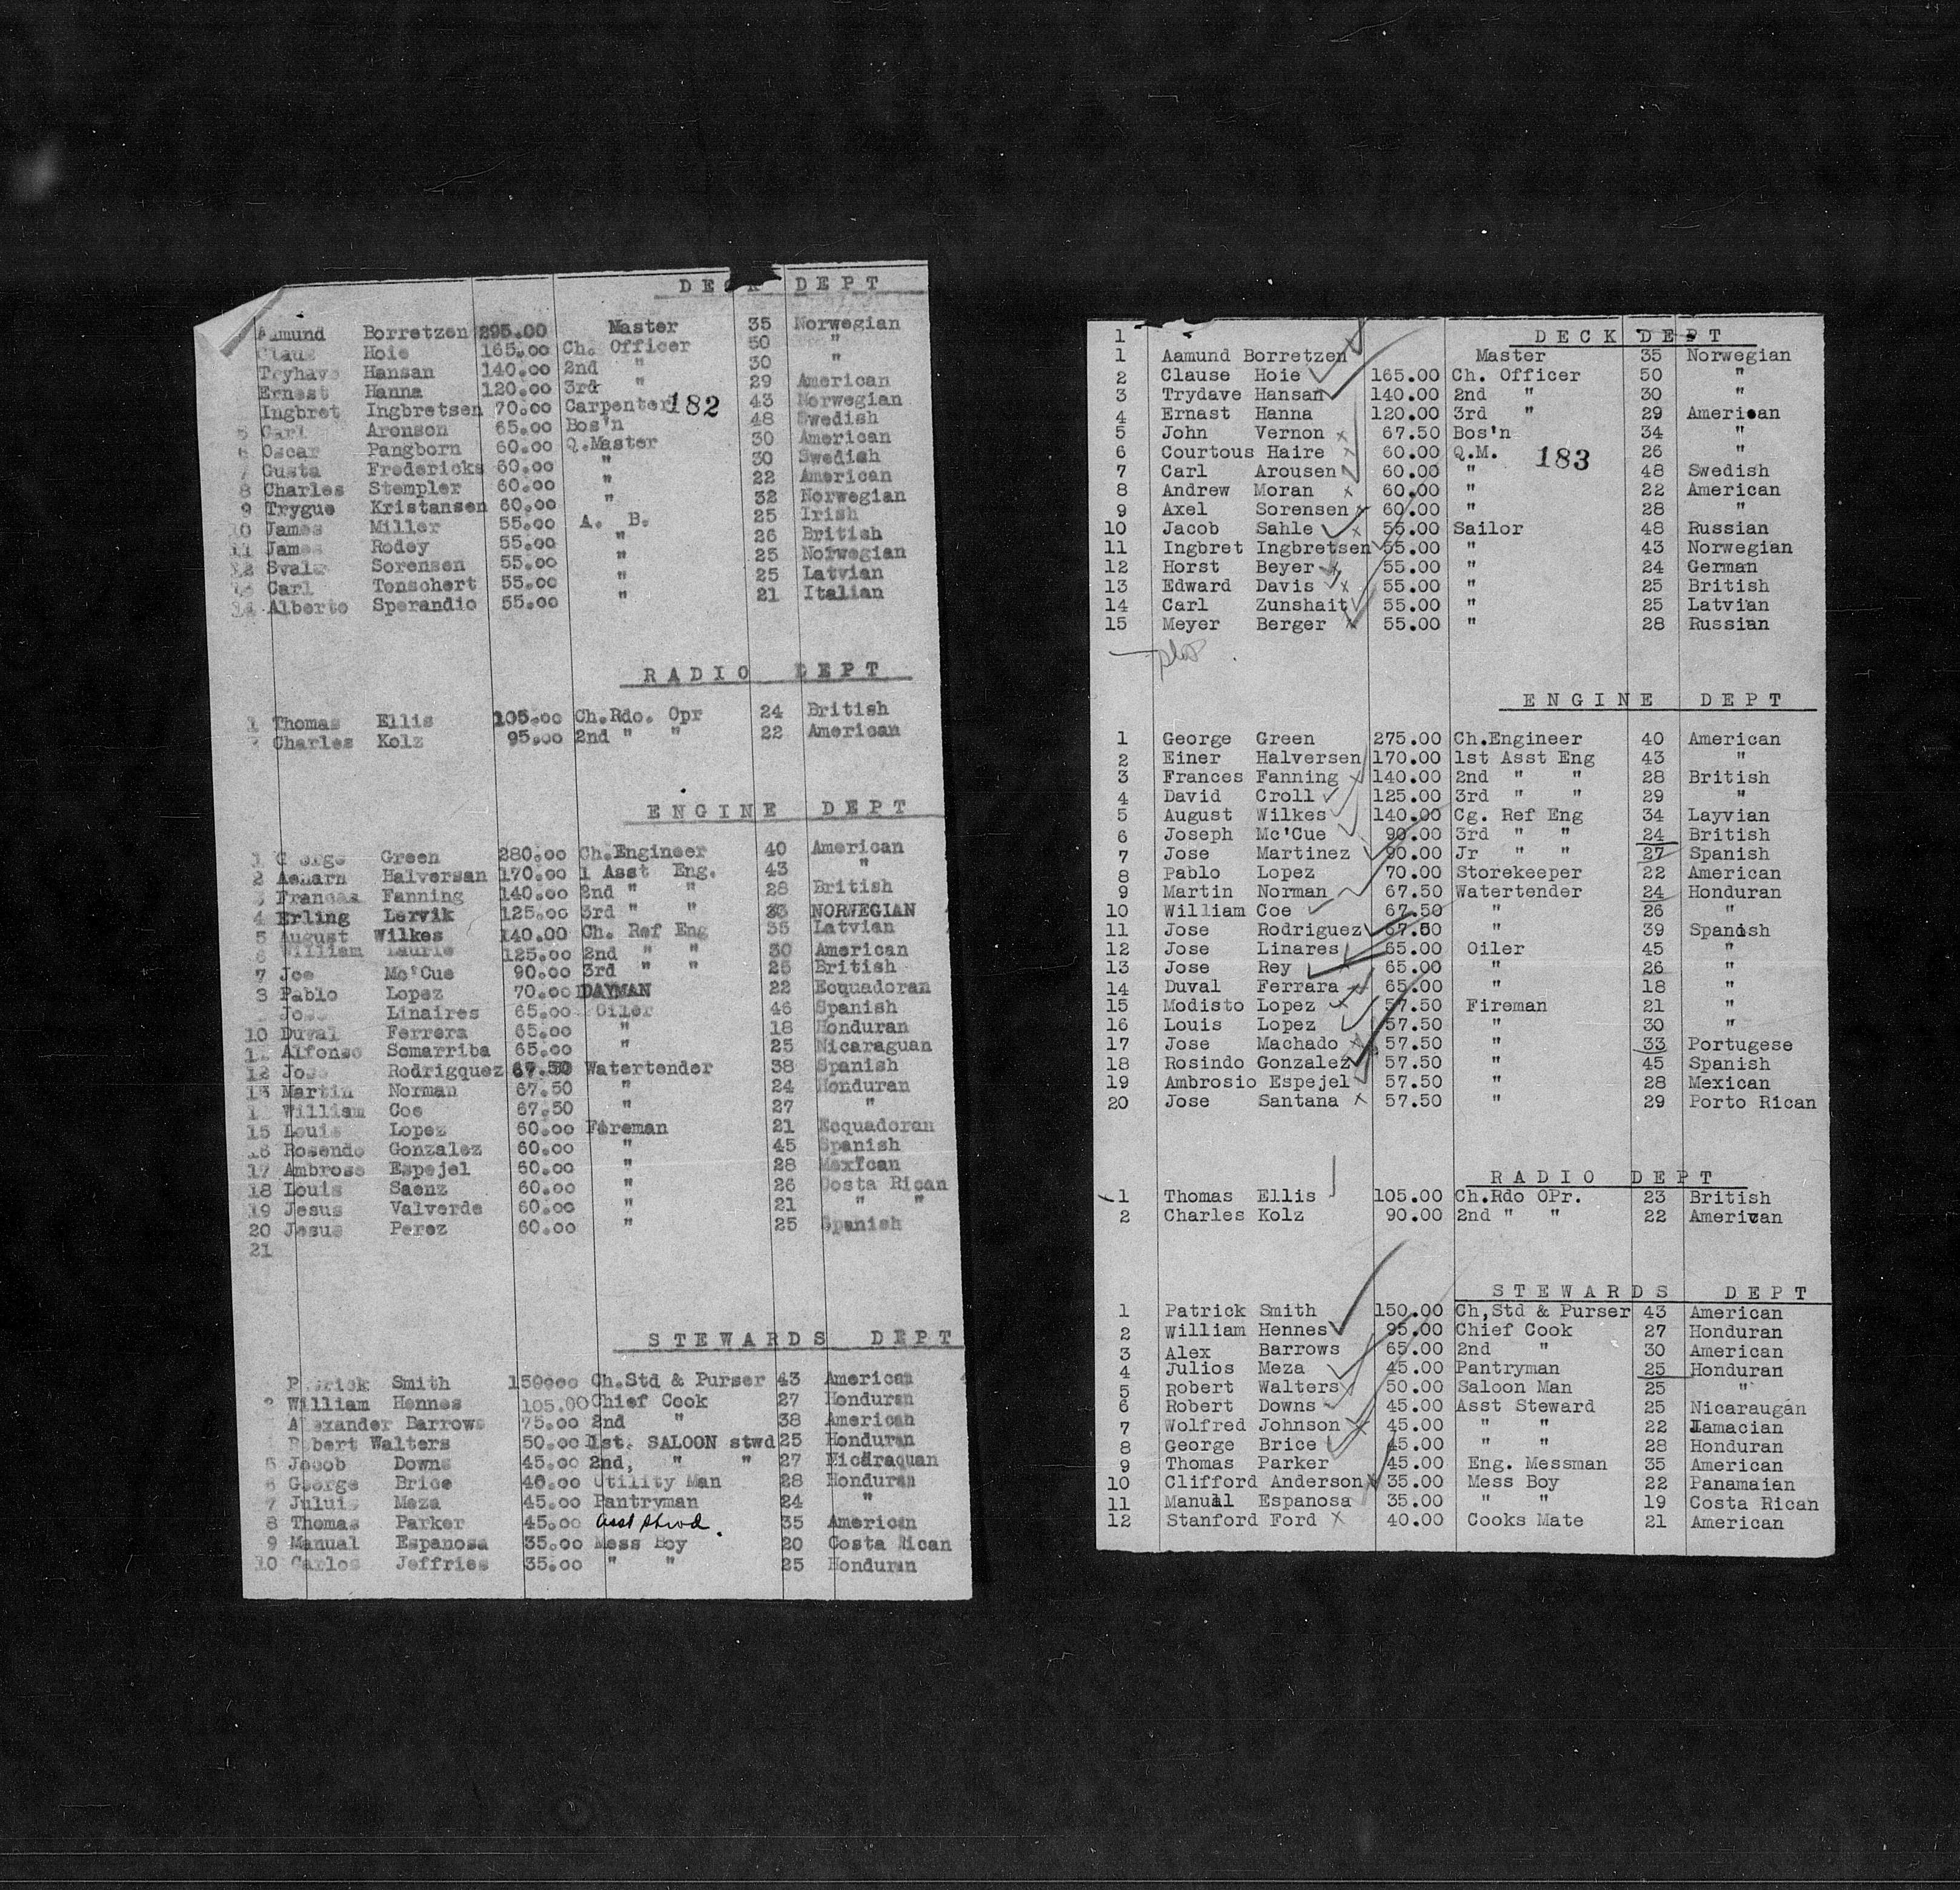 DECK DEPT
Aamund Borretzen 295.00 Master 35 Norwegian
Claus Hoie 165.00 Ch. Officer 50 "
Tryhave Hansan 140.00 2nd " 30 "
Ernest Hanna 120.00 3rd " 29 American
Ingbret Ingbretsen 70.00 Carpenter 43 Norwegian
182
5 Carl Aronson 65.00 Bos'n 48 Swedish
6 Oscar Pangborn 60.00 Q.Master 30 American
7 Gusta Fredericks 60.00 " 30 Swedish
8 Charles Stempler 60.00 " 22 American
9 Trygue Kristansen 60.00 " 32 Norwegian
10 James Miller 55.00 A. B. 25 Irish
11 James Rodey 55.00 " 26 British
12 Svale Sorensen 55.00 " 25 Norwegian
13 Carl Tenschert 55.00 " 25 Latvian
14 Alberto Sperandio 55.00 " 21 Italian
RADIO DEPT
1 Thomas Ellis 105.00 Ch.Rdo. Opr 24 British
Charles Kolz 95.00 2nd " " 22 American
ENGINE DEPT
1 George Green 280.00 Ch.Engineer 40 American
2 Halversan 170.00 1 Asst Eng. 43 "
3 Frances Fanning 140.00 2nd " " 28 British
4 Erling Lervik 125.00 3rd " " NORWEGIAN
5 August Wilkes 140.00 Ch. Ref Eng 35 Latvian
6 William Laurie 125.00 2nd " " 30 American
7 Joe Mc'Cue 90.00 3rd " " 25 British
8 Pablo Lopez 70.00 DAYMAN 22 Ecquadoran
Jose Linaires 65.00 Oiler 46 Spanish
10 Duval Ferrera 65.00 " 18 Honduran
11 Alfonso Somarriba 65.00 " 25 Nicaraguan
12 Jose Rodrigquez 67.50 Watertender 38 Spanish
13 Martin Norman 67.50 " 24 Honduran
1 William Coe 67.50 " 27 "
15 Louis Lopez 60.00 Fireman 21 Ecquadoran
16 Rosendo Gonzalez 60.00 " 45 Spanish
17 Ambrose Espejel 60.00 " 28 Mexican
18 Louis Saenz 60.00 " 26 Costa Rican
19 Jesus Valverde 60.00 " 21 " "
20 Jesus Perez 60.00 " 25 Spanish
21
STEWARDS DEPT
Patrick Smith 150.00 Ch.Std & Purser 43 American
2 William Hennes 105.00 Chief Cook 27 Honduran
Alexander Barrows 75.00 2nd " 38 American
Robert Walters 50.00 1st. SALOON stwd 25 Honduran
5 Jocob Downs 45.00 2nd, " " 27 Nicaraquan
6 George Brice 40.00 Utility Man 28 Honduran
7 Juluis Meza 45.00 Pantryman 24 "
8 Thomas Parker 45.00 Asst Stwd. 35 American
9 Manual Espanosa 35.00 Mess Boy 20 Costa Rican
10 Carlos Jeffries 35.00 " " 25 Honduran
1 DECK DEPT
1 Aamund Borretzen Master 35 Norwegian
2 Clause Hoie 165.00 Ch. Officer 50 "
3 Trydave Hansan 140.00 2nd " 30 "
4 Ernast Hanna 120.00 3rd " 29 American
5 John Vernon 67.50 Bos'n 34 "
6 Courtous Haire 60.00 Q.M. 26 "
183
7 Carl Arousen 60.00 " 48 Swedish
8 Andrew Moran 60.00 " 22 American
9 Axel Sorensen 60.00 " 28 "
10 Jacob Sahle 55.00 Sailor 48 Russian
11 Ingbret Ingbretsen 55.00 " 43 Norwegian
12 Horst Beyer 55.00 " 24 German
13 Edward Davis 55.00 " 25 British
14 Carl Zunshait 55.00 " 25 Latvian
15 Meyer Berger 55.00 " 28 Russian
ENGINE DEPT
1 George Green 275.00 Ch.Engineer 40 American
2 Einer Halversen 170.00 1st Asst Eng 43 "
3 Frances Fanning 140.00 2nd " " 28 British
4 David Croll 125.00 3rd " " 29 "
5 August Wilkes 140.00 Cg. Ref Eng 34 Layvian
6 Joseph Mc'Cue 90.00 3rd " " 24 British
7 Jose Martinez 90.00 Jr " " 27 Spanish
8 Pablo Lopez 70.00 Storekeeper 22 American
9 Martin Norman 67.50 Watertender 24 Honduran
10 William Coe 67.50 " 26 "
11 Jose Rodriguez 67.50 " 39 Spanish
12 Jose Linares 65.00 Oiler 45 "
13 Jose Rey 65.00 " 26 "
14 Duval Ferrara 65.00 " 18 "
15 Modisto Lopez 57.50 Fireman 21 "
16 Louis Lopez 57.50 " 30 "
17 Jose Machado 57.50 " 33 Portugese
18 Rosindo Gonzalez 57.50 " 45 Spanish
19 Ambrosio Espejel 57.50 " 28 Mexican
20 Jose Santana 57.50 " 29 Porto Rican
RADIO DEPT
1 Thomas Ellis 105.00 Ch.Rdo OPr. 23 British
2 Charles Kolz 90.00 2nd " " 22 American
STEWARDS DEPT
1 Patrick Smith 150.00 Ch,Std & Purser 43 American
2 William Hennes 95.00 Chief Cook 27 Honduran
3 Alex Barrows 65.00 2nd " 30 American
4 Julios Meza 45.00 Pantryman 25 Honduran
5 Robert Walters 50.00 Saloon Man 25 "
6 Robert Downs 45.00 Asst Steward 25 Nicaraugan
7 Wolfred Johnson 45.00 " " 22 Jamacian
8 George Brice 45.00 " " 28 Honduran
9 Thomas Parker 45.00 Eng. Messman 35 American
10 Clifford Anderson 35.00 Mess Boy 22 Panamaian
11 Manual Espanosa 35.00 " " 19 Costa Rican
12 Stanford Ford 40.00 Cooks Mate 21 American